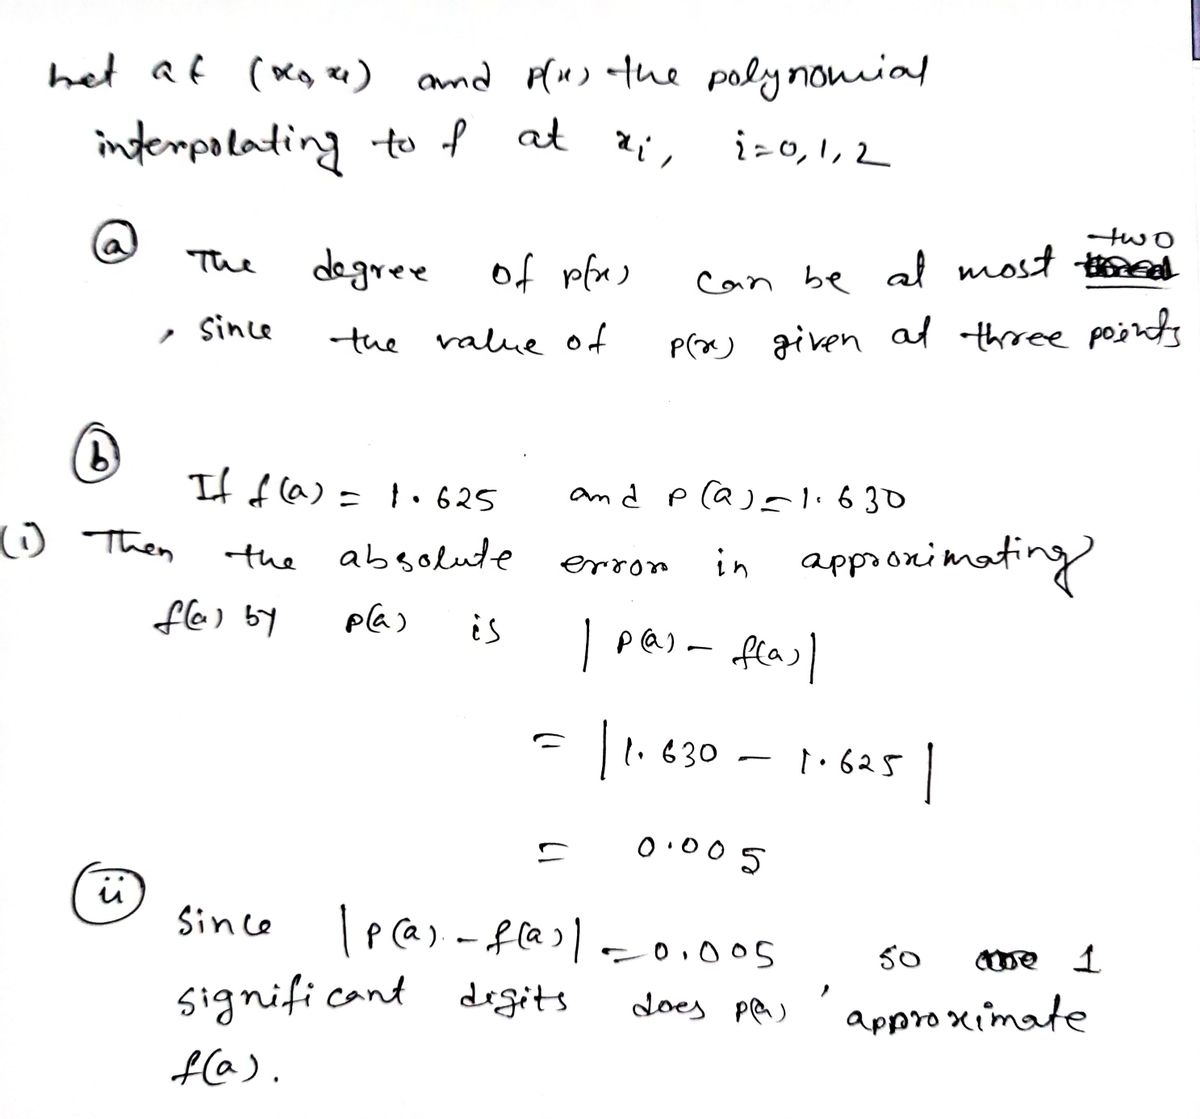 Let a f (x0, x1) and p(x) the polynomial
interpolating to f at xi, i=0,1,2
(a) The degree of p(x) can be at most two
, since the value of p(x) given at three points
(b)
If f(a) = 1.625 and p(a) = 1.630
(i) Then the absolute error in approximating
f(a) by p(a) is | p(a) - f(a) |
= | 1.630 - 1.625 |
= 0.005
(ii)
Since | p(a) - f(a) | = 0.005 so 1
significant digits does p(a) , approximate
f(a).